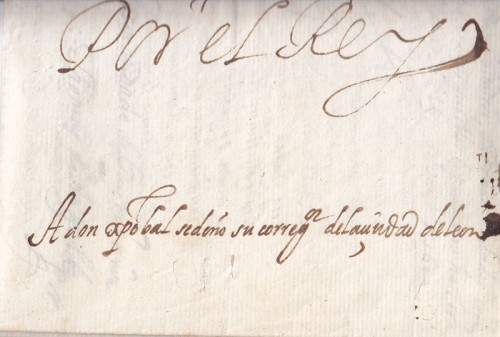 Por el Rey
A don xpobal sedeño su corregor dela ciudad de leon